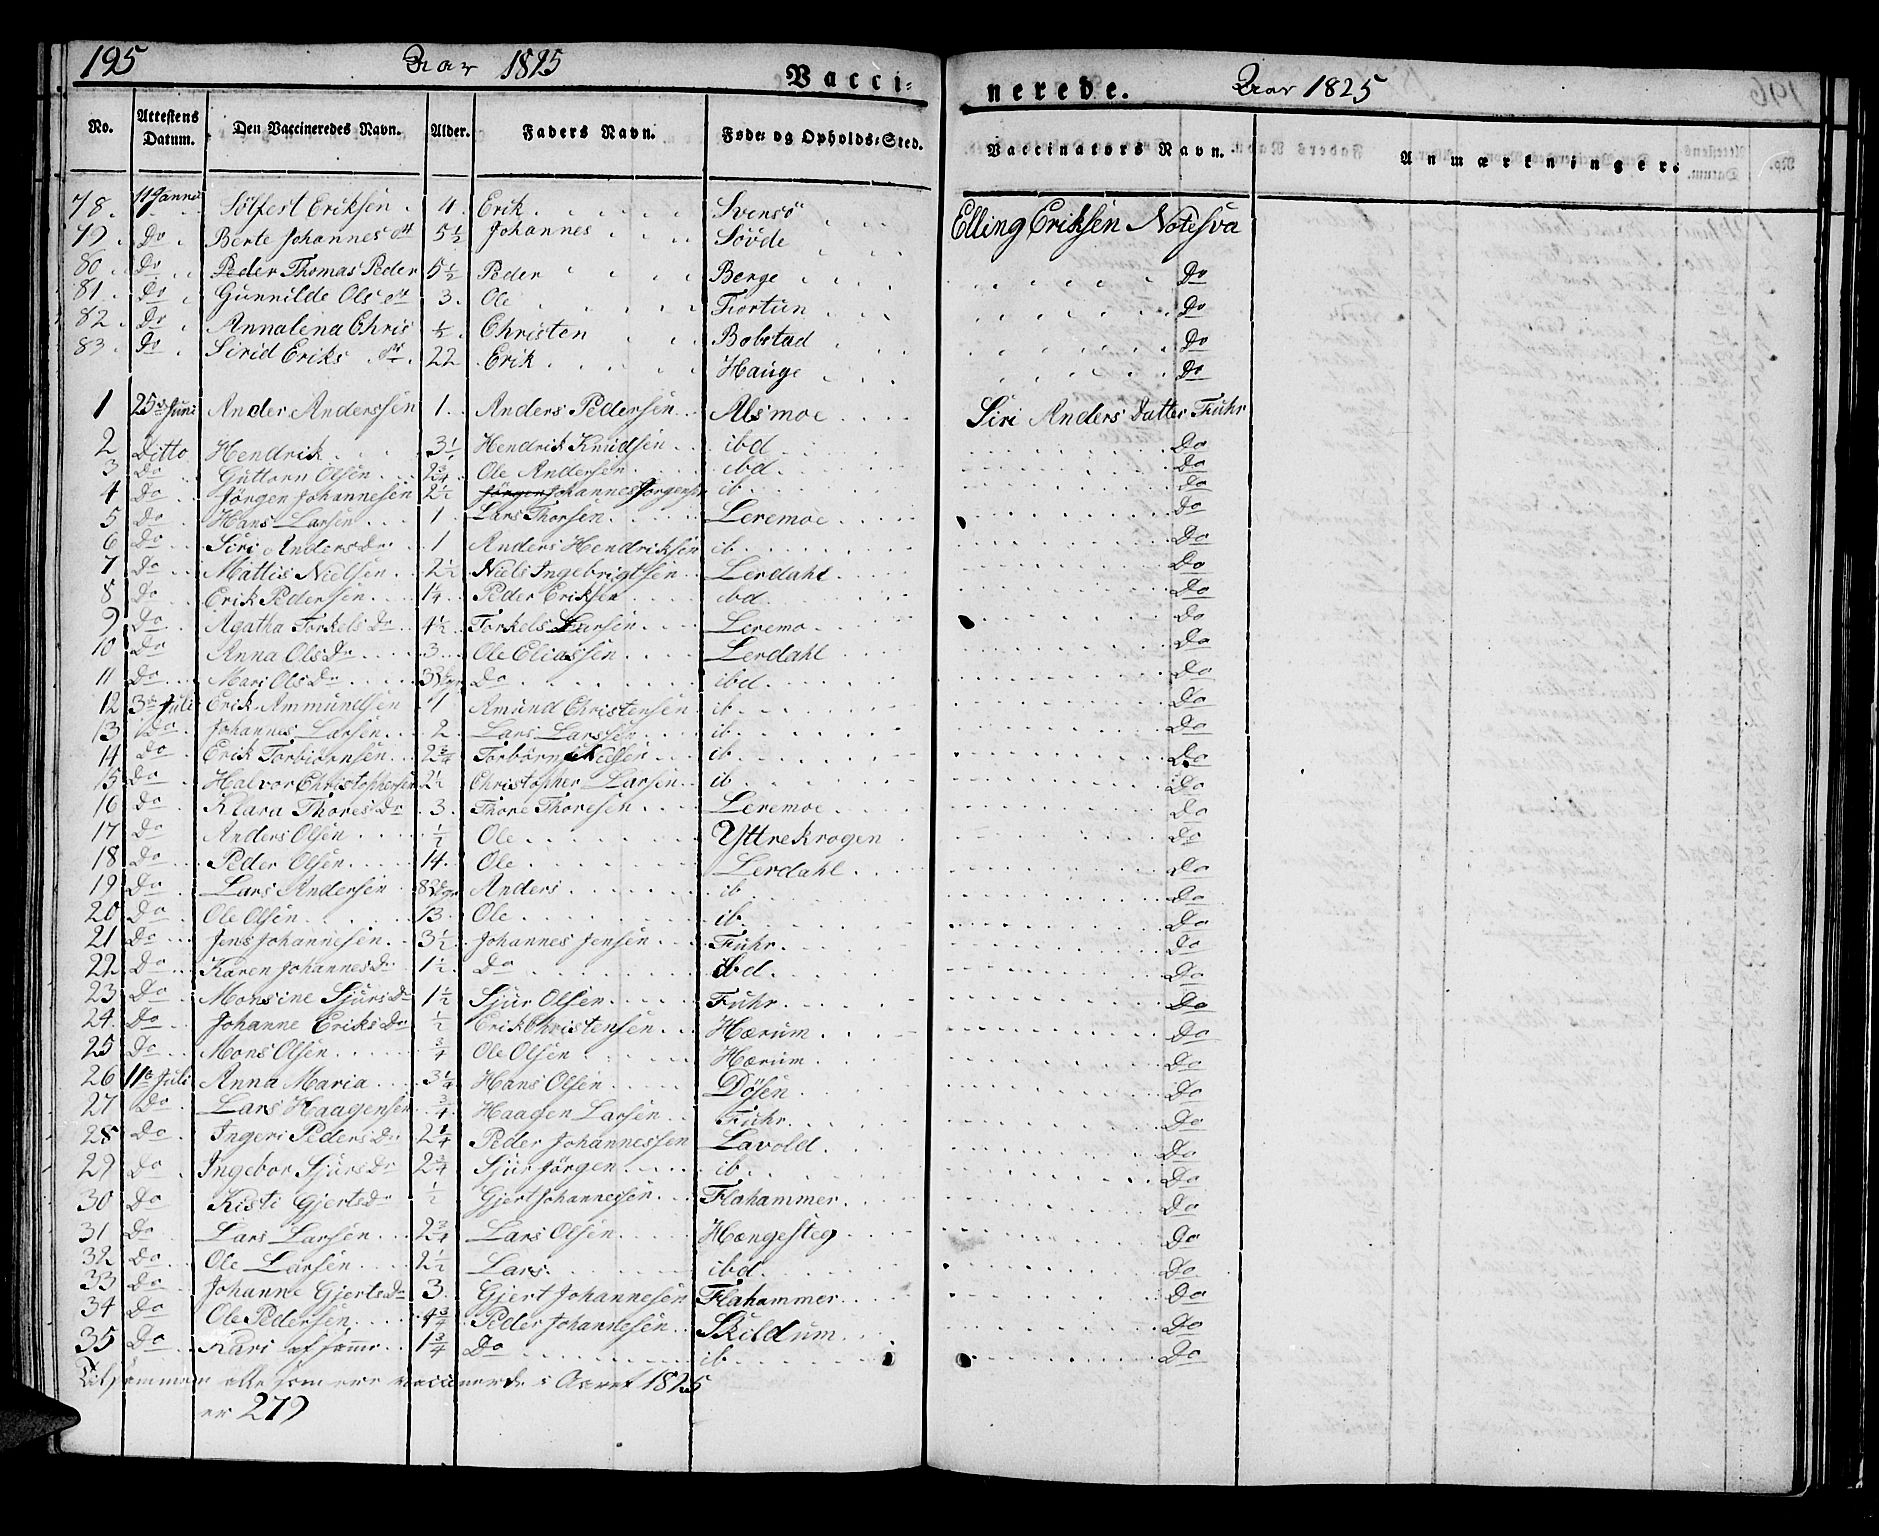 195 Aar 1825 Vacci- nerede. Aar 1825
No. Attestens Datum. Den Vaccineredes Navn. Alder. Faders Navn. Føde- og Opholds-Sted. Vaccinators Navn. Anmærkninger.
78. Sölfest Eriksen 4. Erik Svensö Elling Eriksen Notesva
79 Do Berte Johannes 5 1/2 Johannes Søvde
80 Do Peder Thomas Peder 5 1/2 Peder Berge Do
81 Do Gunnilde Ols 3. Ole Fiortun Do
82 Do Annalena Chris 1/2 Christen Bobstad Do
83 Do Sirid Eriks 22 Erik Hauge Do
1 25 Juni Ander Anderssen 1. Anders Pedersen Alsmoe Siri Anders Datter Fuhr
2 Ditto Hendrik Hendrik Knudsen ibd Do
3 Do Guttorn Olsen 2 3/4 Ole Andersen ibd Do
4 Do Jörgen Johannesen 2 1/2 Johannes Jorgensen ib Do
5 Do Hans Larsen 1 Lars Thorsen Leremoe Do
6 Do Siri Anders Dr 1 Anders Hendriksen ib Do
7 Do Mattis Nielsen 2 1/2 Niels Ingebrigtsen Lerdahl Do
8 Do Erik Pedersen 1/4 Peder Eriksen ibd Do
9 Do Agatha Torkels Dr 4 1/2 Torkels Larsen Leremo Do
10 Do Anna Ols Dr 3 Ole Eliassen Lerdahl Do
11 Do Mari Ols Dr Do ibd Do
12 3 Juli Erik Ammundsen 1 Amund Christensen ib Do
13 Do Johannes Larsen 2 Lars Larssen ib Do
14 Do Erik Torbiörnsen 2 3/4 Torbörn ib Do
15 Do Halvor Christophersen 2 1/2 Christopher Larsen ib Do
16 Do Klara Thores Dr 3. Thore Thoresen Leremoe Do
17 Do Anders Olsen 1/2 Ole Yttrekrogen Do
18 Do Peder Olsen 14 Ole Lerdahl Do
19 Do Lars Andersen Anders ib Do
20 Do Ole Olsen 13 Ole ib Do
21 Do Jens Johannesen 3 1/2 Johannes Jensen Fuhr Do
22 Do Karen Johannes Dr 1 1/2 Do ibd Do
23 Do Monsine Sjurs Dr 1 1/2 Sjur Olsen Fuhr Do
24 Do Johanne Eriks Dr 1/2 Erik Christensen Hærum Do
25 Do Mons Olsen 3/4 Ole Olsen Hærum Do
26 11te Juli Anna Maria 3 1/4 Hans Olsen Dösen Do
27 Do Lars Haagensen 3/4 Haagen Larsen Fuhr Do
28 Do Ingeri Peders Dr Peder Johannessen Lavold Do
29 Do Ingebor Sjurs Dr 2 3/4 Sjur Jörgen ib Do
30 Do Kisti Gjerts Dr 1/2 Gjert Johannessen Flahammer Do
31 Do Lars Larsen 2 3/4 Lars Olsen Hængesteg Do
32 Do Ole Larsen 2 1/2 Lars ibd Do
33 Do Johanne Gjerts Dr 3. Gjert Johannesen Flahammer Do
34 Do Ole Pedersen 4 3/4 Peder Johannesen Skildum Do
35 Do Kari af samme 1 3/4 Do ib Do
Tilsammen alle som ere vaccinerede i Aaret 1825
er 279